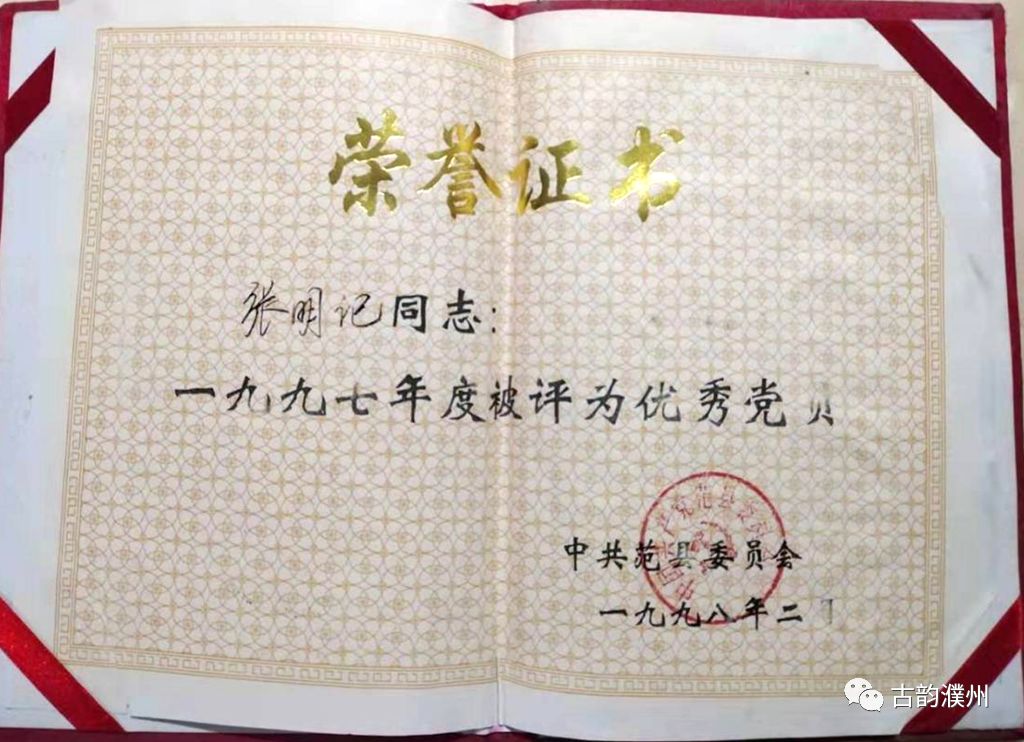 荣誉证书
张明记同志：
一九九七年度被评为优秀党员
中共范县委员会
一九九八年二月
古韵濮州